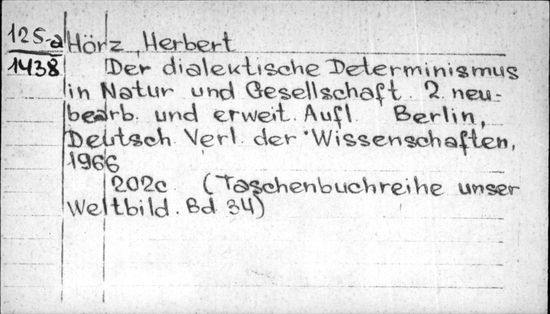 125-a Hörz, Herbert
1438
Der dialektische Determinismus
in Natur und Gesellschaft. 2. neu-
bearb. und erweit. Aufl. Berlin,
Deutsch. Verl. der Wissenschaften,
1966
202c. (Taschenbuchreihe unser
Weltbild. Bd 34)